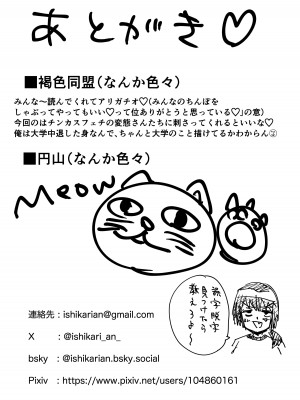 あとがき♡
■褐色同盟(なんか色々)
みんな〜読んでくれてアリガチオ♡(みんなのちんぽを
しゃぶってやってもいい♡って位ありがとうと思っている♡」の意)
今回のはチンカスフェチの変態さんたちに刺さってくれるといいな♡
俺は大学中退した身なんで、ちゃんと大学のこと描けてるかわからん②
■円山(なんか色々)
Meow
誤字脱字
見つけたら
教えろよ〜
連絡先:ishikarian@gmail.com
X :@ishikari_an_
bsky :@ishikarian.bsky.social
Pixiv :https://www.pixiv.net/users/104860161